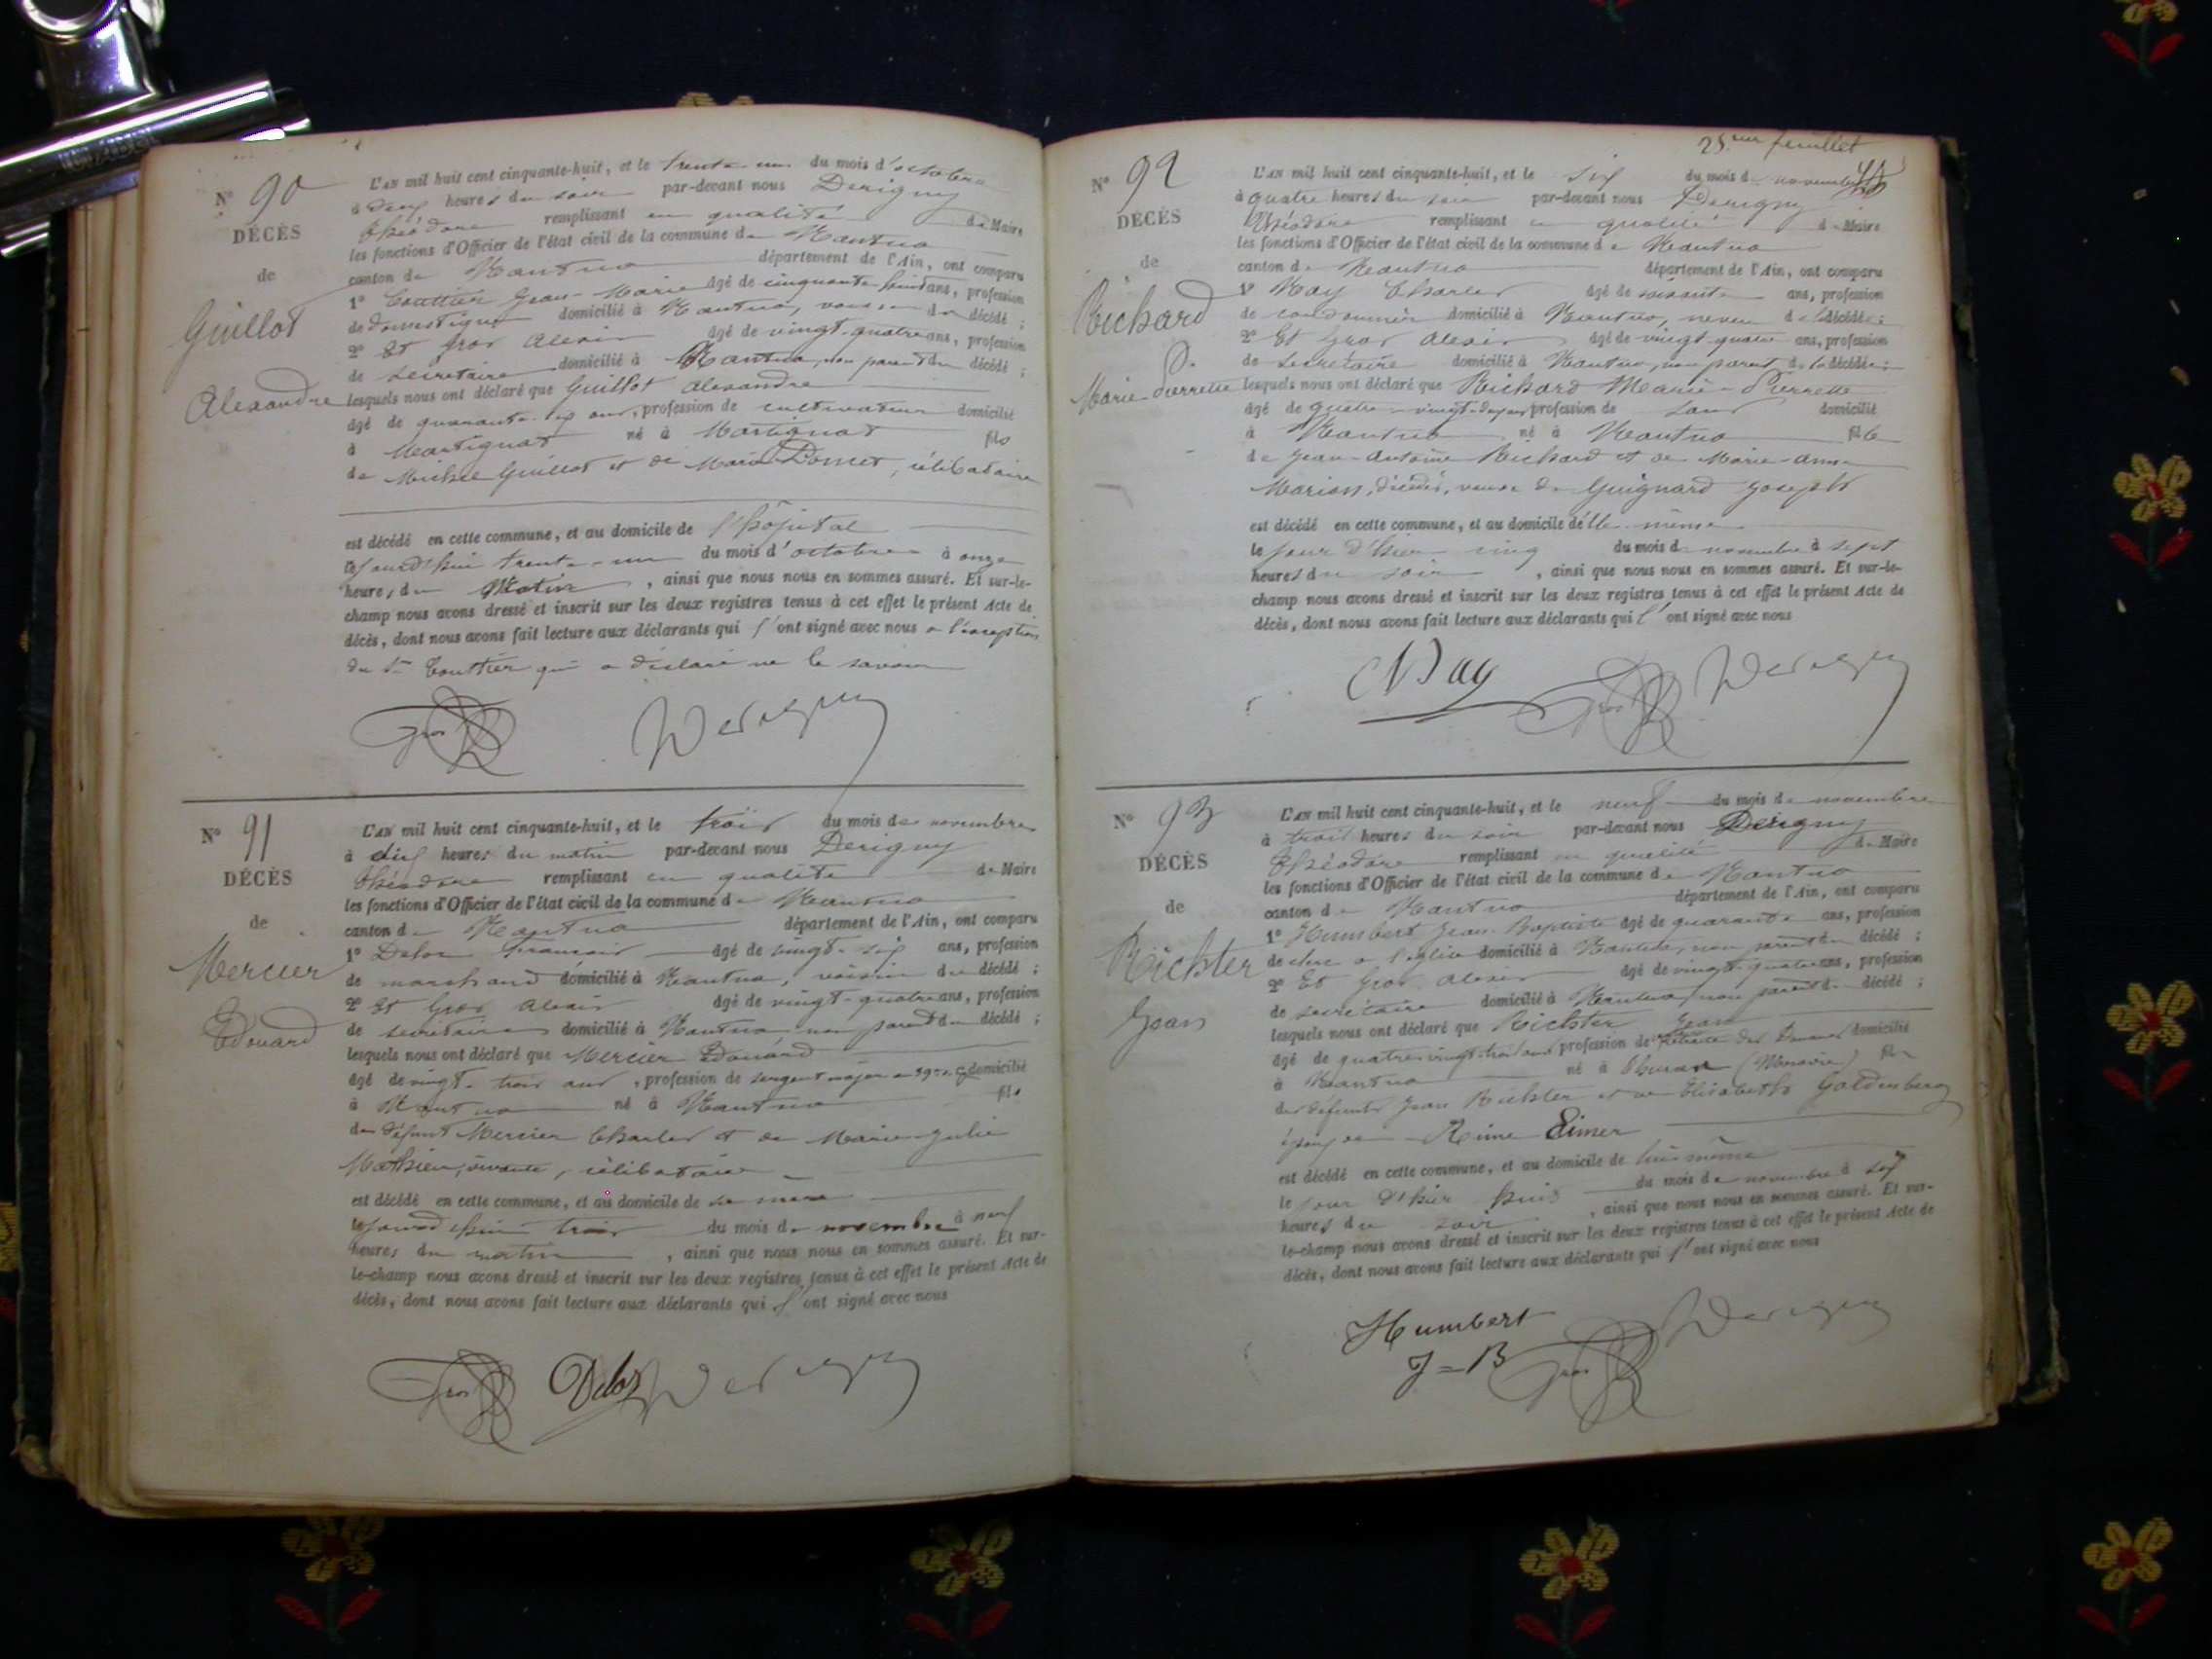 N° 90
DÉCÈS
de
Guillot
Alexandre
L'AN mil huit cent cinquante-huit, et le trente-un du mois d'octobre
à deux heures du soir par-devant nous Derigny
Théodore remplissant en qualité de Maire
les fonctions d'Officier de l'état civil de la commune de Nantua
canton de Nantua département de l'Ain, ont comparu
1° Jean-Marie âgé de cinquante huit ans, profession
de domestique domicilié à Nantua, voisin du décédé ;
2° Et Gros Alexis âgé de vingt-quatre ans, profession
de secrétaire domicilié à Nantua, non parent du décédé ;
lesquels nous ont déclaré que Guillot Alexandre
âgé de quarante-six ans, profession de cultivateur domicilié
à Martignat né à Martignat fils
de Michel Guillot et de Marie, célibataire
est décédé en cette commune, et au domicile de l'hôpital
le jourd'hui trente-un du mois d'octobre à onze
heures du Matin, ainsi que nous nous en sommes assuré. Et sur-le-
champ nous avons dressé et inscrit sur les deux registres tenus à cet effet le présent Acte de
décès, dont nous avons fait lecture aux déclarants qui l'ont signé avec nous à l'exception
du Sr qui a déclaré ne le savoir
Gros Derigny
N° 91
DÉCÈS
de
Mercier
Edouard
L'AN mil huit cent cinquante-huit, et le trois du mois de novembre
à dix heures du matin par-devant nous Derigny
Théodore remplissant en qualité de Maire
les fonctions d'Officier de l'état civil de la commune de Nantua
canton de Nantua département de l'Ain, ont comparu
1° Deloz François âgé de vingt-six ans, profession
de marchand domicilié à Nantua, voisin du décédé ;
2° Et Gros Alexis âgé de vingt-quatre ans, profession
de secrétaire domicilié à Nantua non parent du décédé ;
lesquels nous ont déclaré que Mercier Edouard
âgé de vingt-trois ans, profession de sergent major au domicilié
à Nantua né à Nantua fils
de défunt Mercier Charles et de Marie-Julie
Mathieu, vivante, célibataire
est décédé en cette commune, et au domicile de sa mère
le jourd'hui trois du mois de novembre à neuf
heures du matin, ainsi que nous nous en sommes assuré. Et sur-
le-champ nous avons dressé et inscrit sur les deux registres tenus à cet effet le présent Acte de
décès, dont nous avons fait lecture aux déclarants qui l'ont signé avec nous
Gros Deloz Derigny
25ème feuillet
N° 92
DÉCÈS
de
Richard
Marie-Pierrette
L'AN mil huit cent cinquante-huit, et le six du mois de novembre
à quatre heures du soir par-devant nous Derigny
Théodore remplissant en qualité de Maire
les fonctions d'Officier de l'état civil de la commune de Nantua
canton de Nantua département de l'Ain, ont comparu
1° Nay Charles âgé de soixante ans, profession
de cordonnier domicilié à Nantua, neveu de la décédée ;
2° Et Gros Alexis âgé de vingt-quatre ans, profession
de secrétaire domicilié à Nantua, non parent de la décédée ;
lesquels nous ont déclaré que Richard Marie-Pierrette
âgé de quatre-vingt-deux ans profession de sans domicilié
à Nantua né à Nantua fille
de Jean-Antoine Richard et de Marie-Anne
Marion, décédés, veuve de Guignard Joseph
est décédé en cette commune, et au domicile d'elle-même
le jour d'hier cinq du mois de novembre à sept
heures du soir, ainsi que nous nous en sommes assuré. Et sur-le-
champ nous avons dressé et inscrit sur les deux registres tenus à cet effet le présent Acte de
décès, dont nous avons fait lecture aux déclarants qui l'ont signé avec nous
C Nay Gros Derigny
N° 93
DÉCÈS
de
Richter
Jean
L'AN mil huit cent cinquante-huit, et le neuf du mois de novembre
à trois heures du soir par-devant nous Derigny
Théodore remplissant en qualité de Maire
les fonctions d'Officier de l'état civil de la commune de Nantua
canton de Nantua département de l'Ain, ont comparu
1° Humbert Jean-Baptiste âgé de quarante ans, profession
de clerc à l'église domicilié à Nantua, non parent du décédé ;
2° Et Gros Alexis âgé de vingt-quatre ans, profession
de secrétaire domicilié à Nantua, non parent du décédé ;
lesquels nous ont déclaré que Richter Jean
âgé de quatre-vingt-trois ans profession de retraité des Douanes domicilié
à Nantua né à (Moravie) fils
des défunts Jean Richter et de Elisabeth Goldenberg
époux de Reine Eimer
est décédé en cette commune, et au domicile de lui-même
le jour d'hier huit du mois de novembre à six
heures du soir, ainsi que nous nous en sommes assuré. Et sur-
le-champ nous avons dressé et inscrit sur les deux registres tenus à cet effet le présent Acte de
décès, dont nous avons fait lecture aux déclarants qui l'ont signé avec nous
Humbert Derigny
J=B Gros